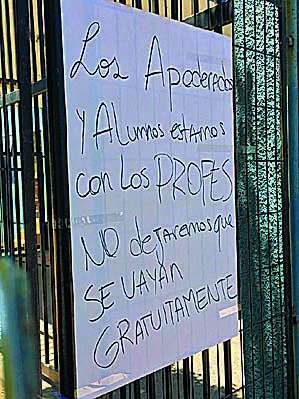 Los Apoderados
y Alumnos estamos
con Los PROFES
NO dejaremos que
SE VAYAN
GRATUITAMENTE